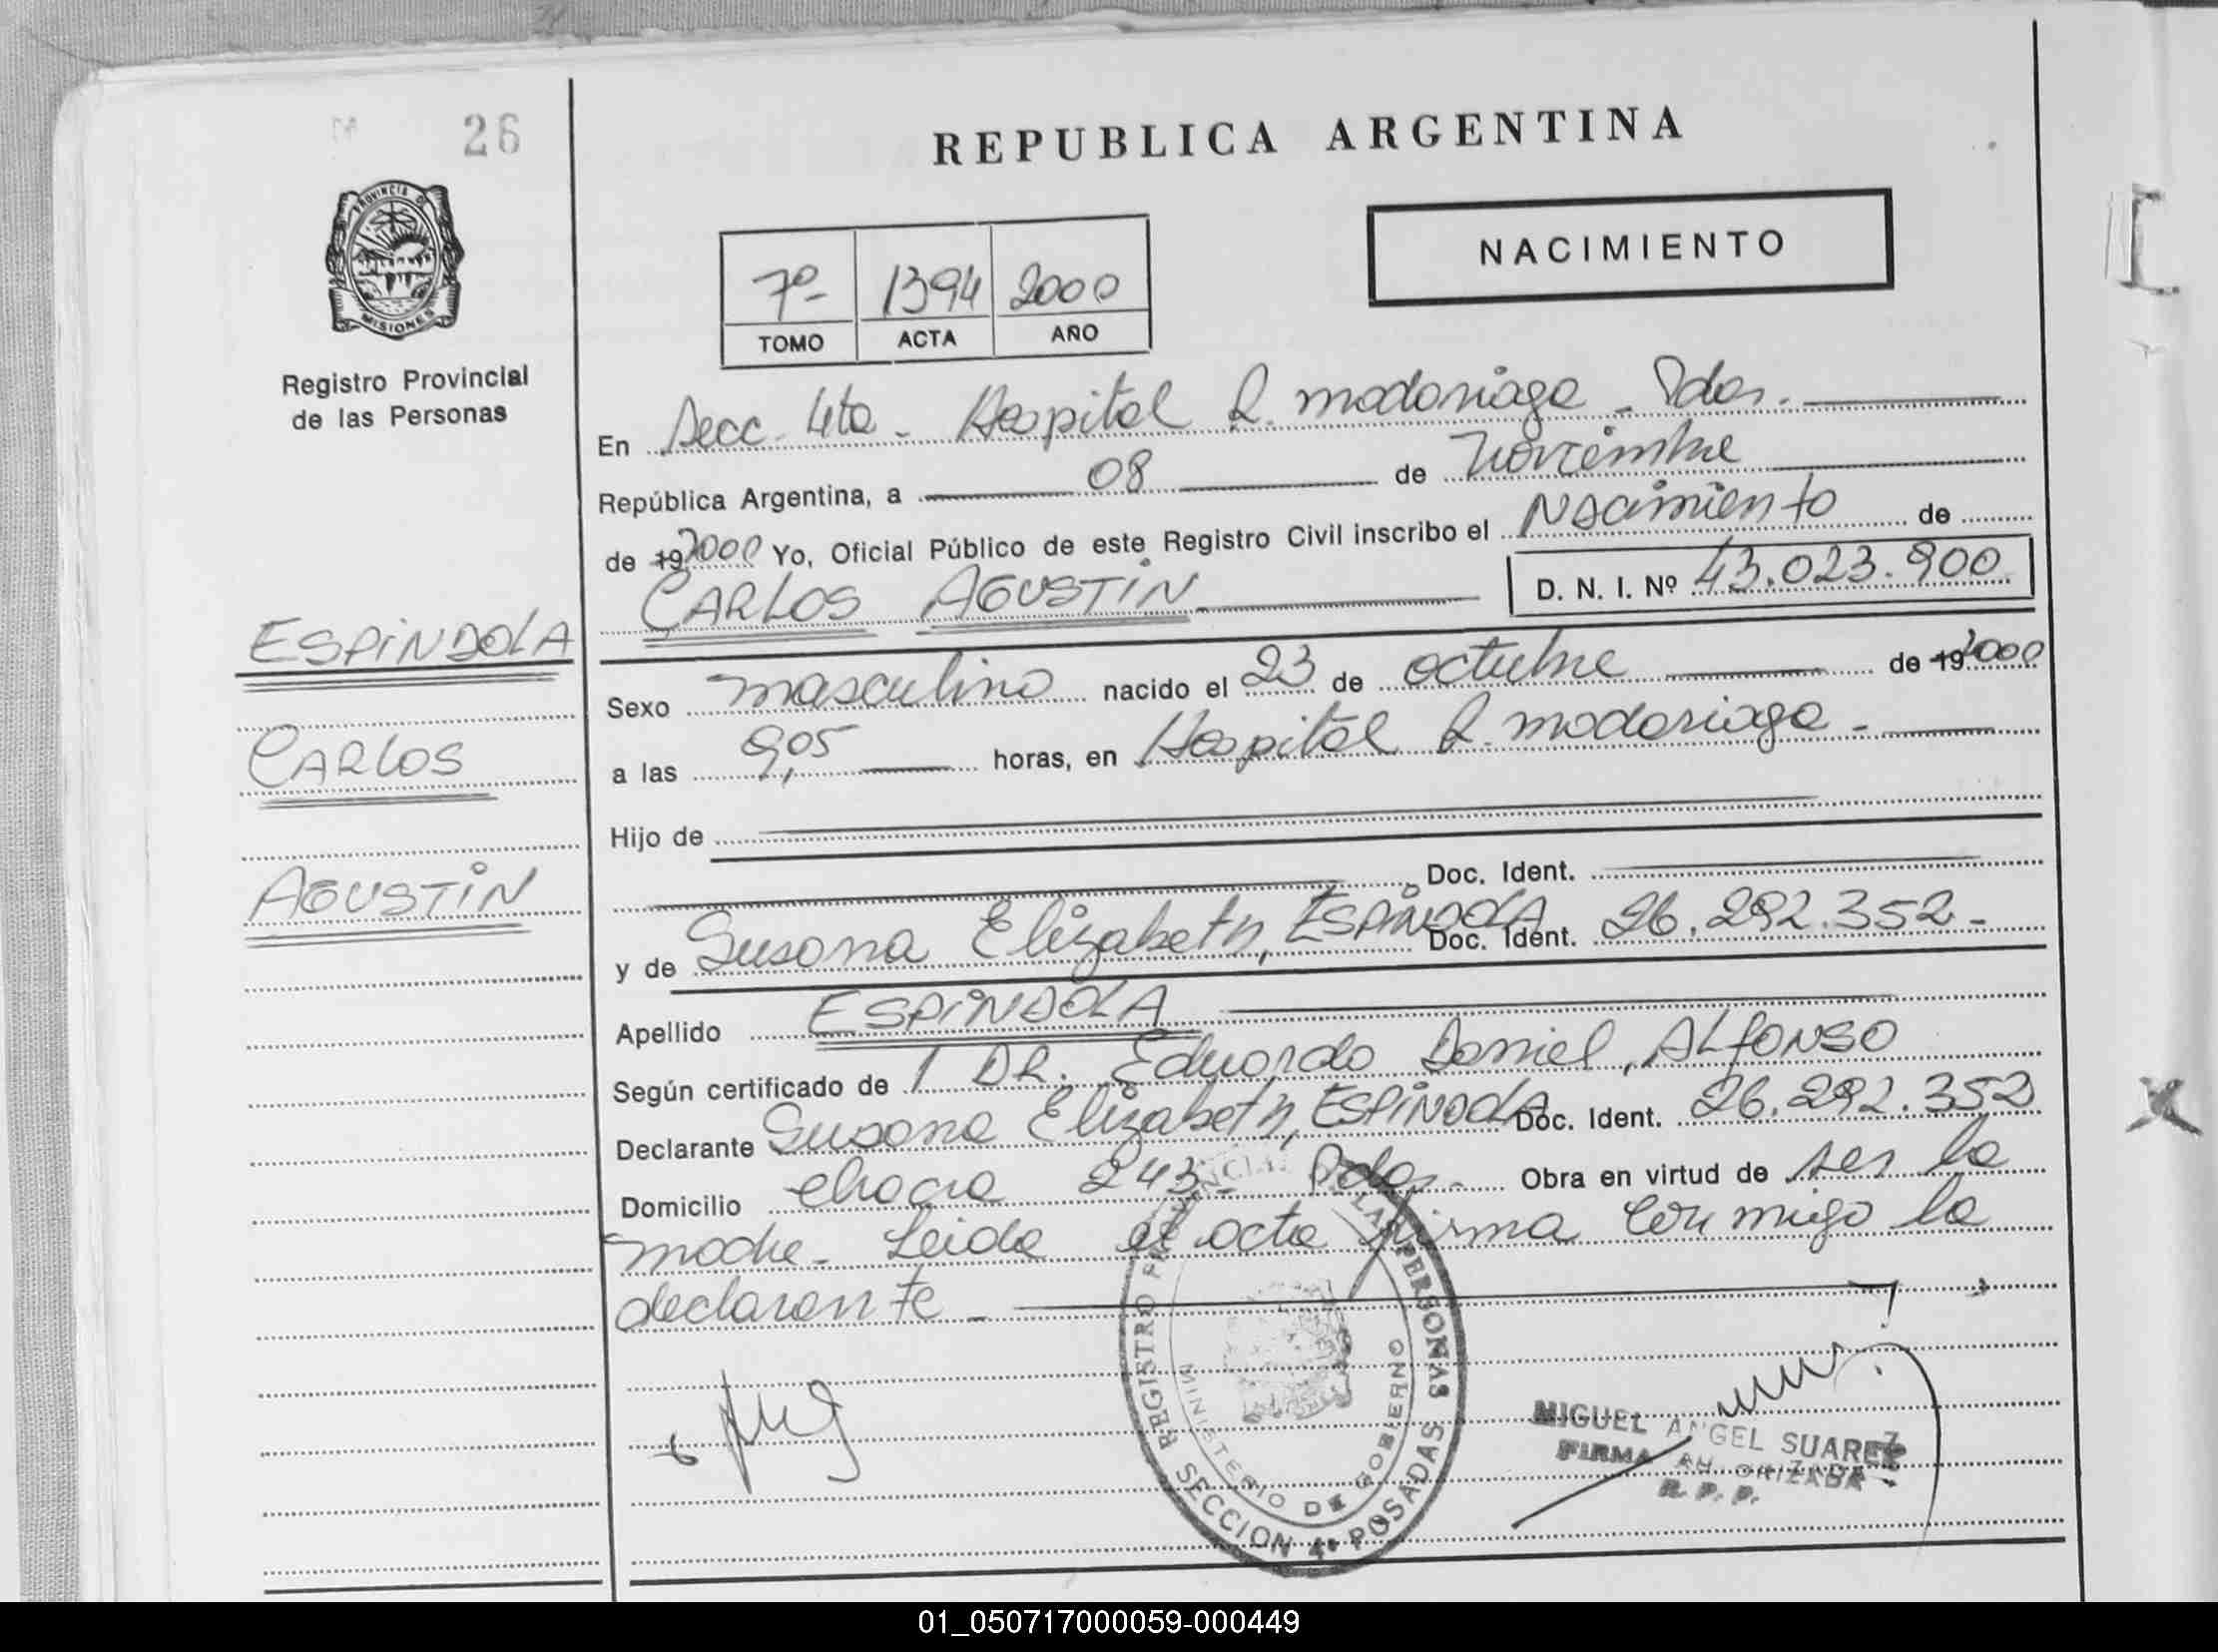 26
PROVINCIA DE
MISIONES
Registro Provincial
de las Personas
ESPINDOLA
CARLOS
AGUSTIN
REPUBLICA ARGENTINA
NACIMIENTO
7º- 1394 2000
TOMO ACTA AÑO
En Secc. 4ta - Hospital R. madariaga - Pdas.
República Argentina, a 08 de Noviembre
de 19 2000 Yo, Oficial Público de este Registro Civil inscribo el Nacimiento de
CARLOS AGUSTIN D. N. I. Nº 43.023.900
Sexo masculino nacido el 23 de octubre de 19 2000
a las 9,05 horas, en Hospital R. madariaga -
Hijo de
Doc. Ident.
y de Susana Elizabeth, ESPINDOLA Doc. Ident. 26.292.352-
Apellido ESPINDOLA
Según certificado de DR. Eduardo Daniel, ALFONSO
Declarante Susana Elizabeth, ESPINDOLA Doc. Ident. 26.292.352
Domicilio chacra 243- Pdas. Obra en virtud de ser la
madre - Leida el acta firma conmigo la
declarante -
REGISTRO PROVINCIAL DE LAS PERSONAS
MINISTERIO DE GOBIERNO
SECCION 4ª POSADAS
MIGUEL ANGEL SUAREZ
FIRMA AUTORIZADA
R. P. P.
01_050717000059-000449